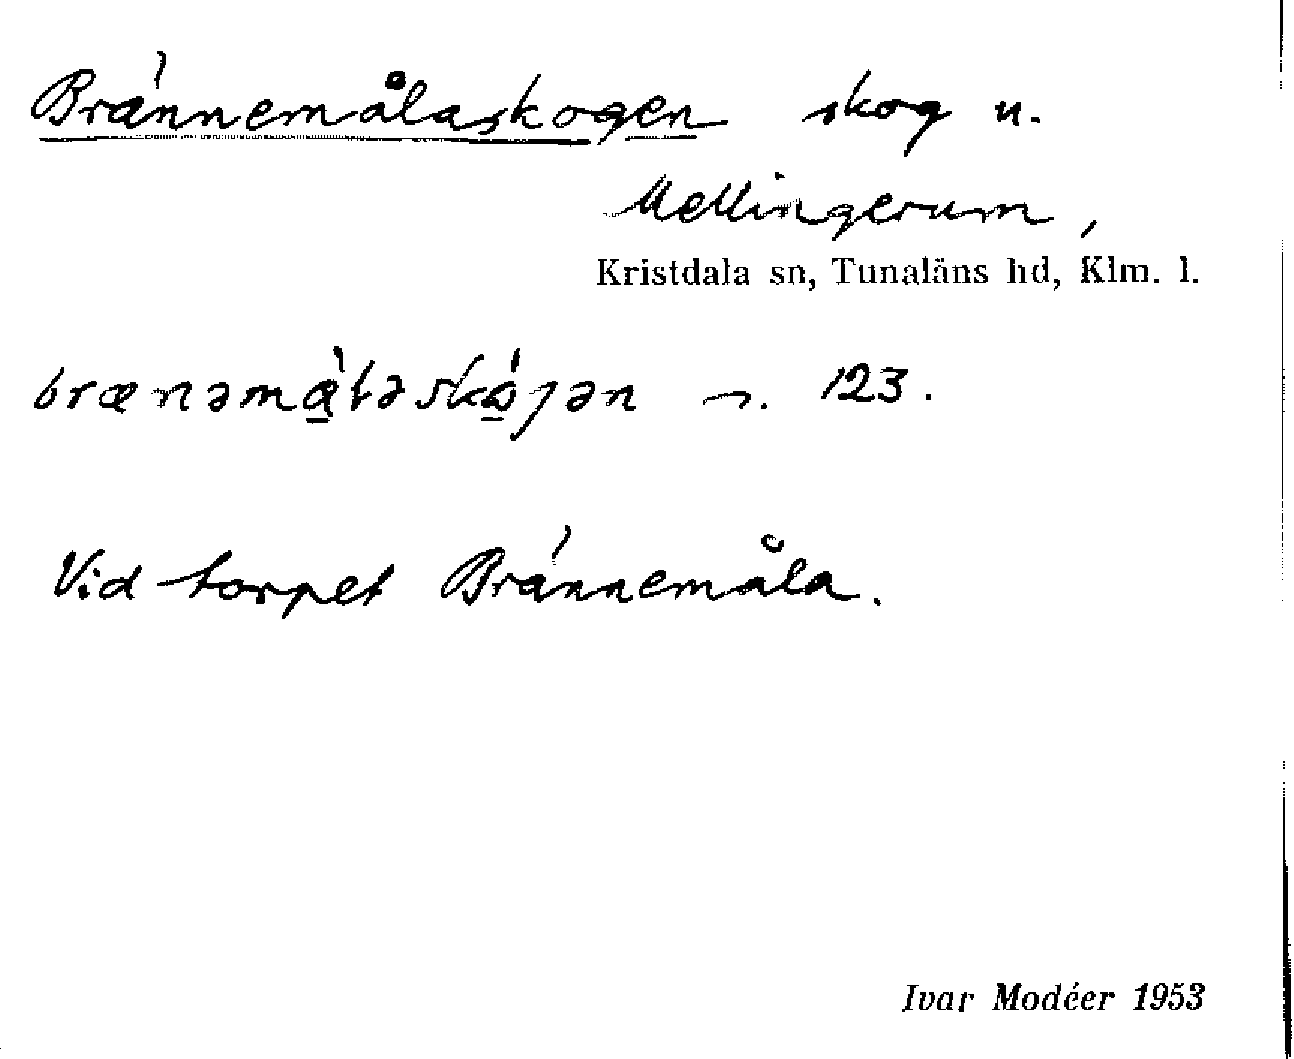 Brännemålaskogen skog u.
Mellingerum,
Kristdala sn, Tunaläns hd, Klm. l.
brænəmà̱ɫəskó̱ɡən ¬. 123.
Vid torpet Brännemåla.
Ivar Modéer 1953